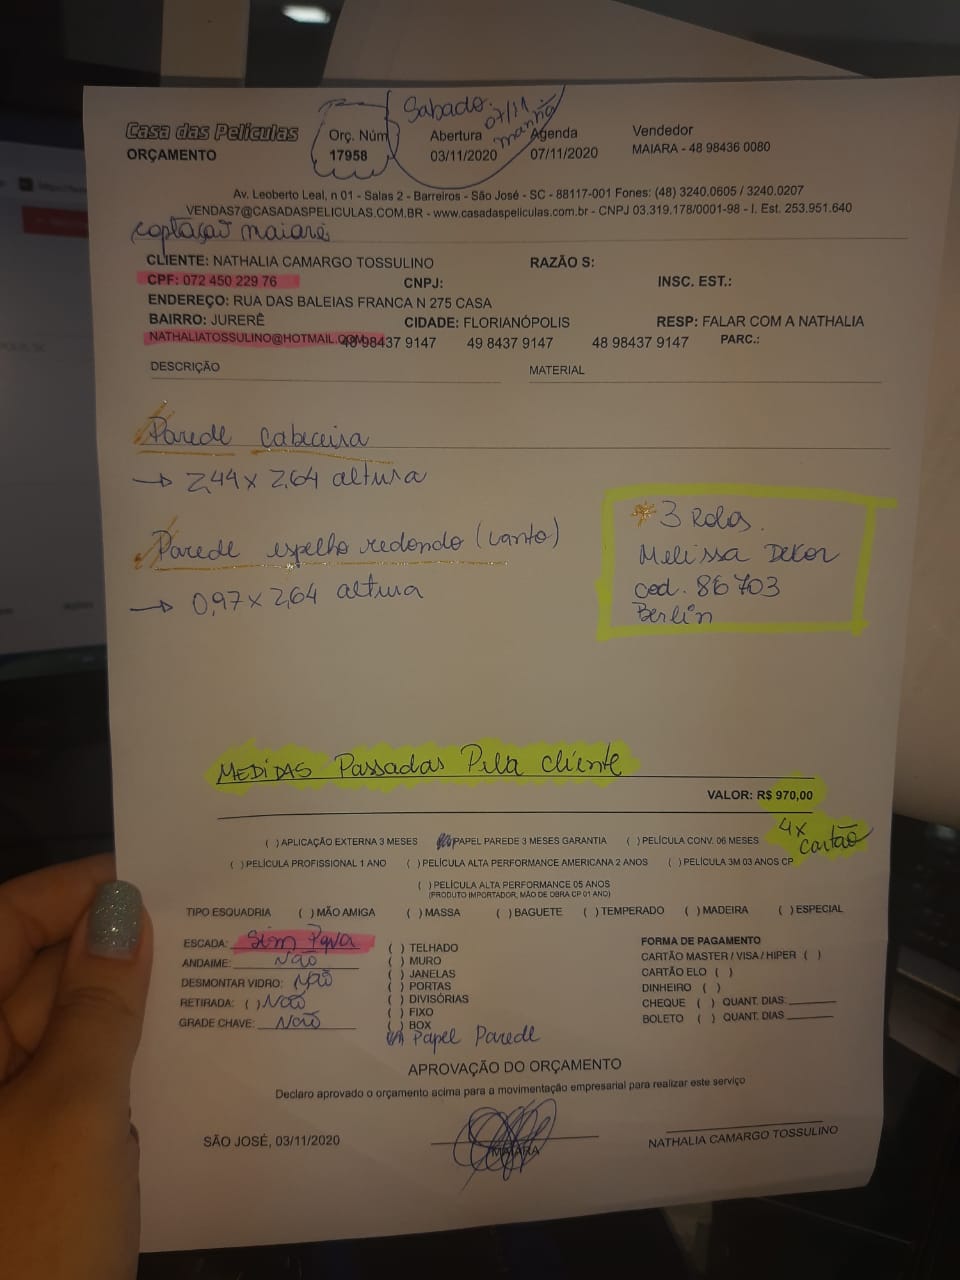 Sabado.
07/11
manhã
Casa das Películas
ORÇAMENTO
Orç. Núm
17958
Abertura
03/11/2020
Agenda
07/11/2020
Vendedor
MAIARA - 48 98436 0080
Av. Leoberto Leal, n 01 - Salas 2 - Barreiros - São José - SC - 88117-001 Fones: (48) 3240.0605 / 3240.0207
VENDAS7@CASADASPELICULAS.COM.BR - www.casadaspeliculas.com.br - CNPJ 03.319.178/0001-98 - I. Est. 253.951.640
captação maiara
CLIENTE: NATHALIA CAMARGO TOSSULINO RAZÃO S:
CPF: 072 450 229 76 CNPJ: INSC. EST.:
ENDEREÇO: RUA DAS BALEIAS FRANCA N 275 CASA
BAIRRO: JURERÊ CIDADE: FLORIANÓPOLIS RESP: FALAR COM A NATHALIA
NATHALIATOSSULINO@HOTMAIL.COM 48 98437 9147 49 8437 9147 48 98437 9147 PARC.:
DESCRIÇÃO MATERIAL
Parede cabeceira
→ 2,44 x 2,64 altura
Parede espelho redondo (canto)
→ 0,97 x 2,64 altura
* 3 Rolos.
Melissa Dekor
cod. 86703
Berlin
MEDIDAS Passadas Pela cliente
VALOR: R$ 970,00
4x
cartão
( ) APLICAÇÃO EXTERNA 3 MESES PAPEL PAREDE 3 MESES GARANTIA ( ) PELÍCULA CONV. 06 MESES
( ) PELÍCULA PROFISSIONAL 1 ANO ( ) PELÍCULA ALTA PERFORMANCE AMERICANA 2 ANOS ( ) PELÍCULA 3M 03 ANOS CP
( ) PELÍCULA ALTA PERFORMANCE 05 ANOS
(PRODUTO IMPORTADOR, MÃO DE OBRA CP 01 ANO)
TIPO ESQUADRIA ( ) MÃO AMIGA ( ) MASSA ( ) BAGUETE ( ) TEMPERADO ( ) MADEIRA ( ) ESPECIAL
ESCADA: Sim
ANDAIME: Não
DESMONTAR VIDRO: Não
RETIRADA: ( ) Não
GRADE CHAVE: Não
( ) TELHADO
( ) MURO
( ) JANELAS
( ) PORTAS
( ) DIVISÓRIAS
( ) FIXO
( ) BOX
Papel Parede
FORMA DE PAGAMENTO
CARTÃO MASTER / VISA / HIPER ( )
CARTÃO ELO ( )
DINHEIRO ( )
CHEQUE ( ) QUANT. DIAS:
BOLETO ( ) QUANT. DIAS
APROVAÇÃO DO ORÇAMENTO
Declaro aprovado o orçamento acima para a movimentação empresarial para realizar este serviço
SÃO JOSÉ, 03/11/2020
MAIARA
NATHALIA CAMARGO TOSSULINO